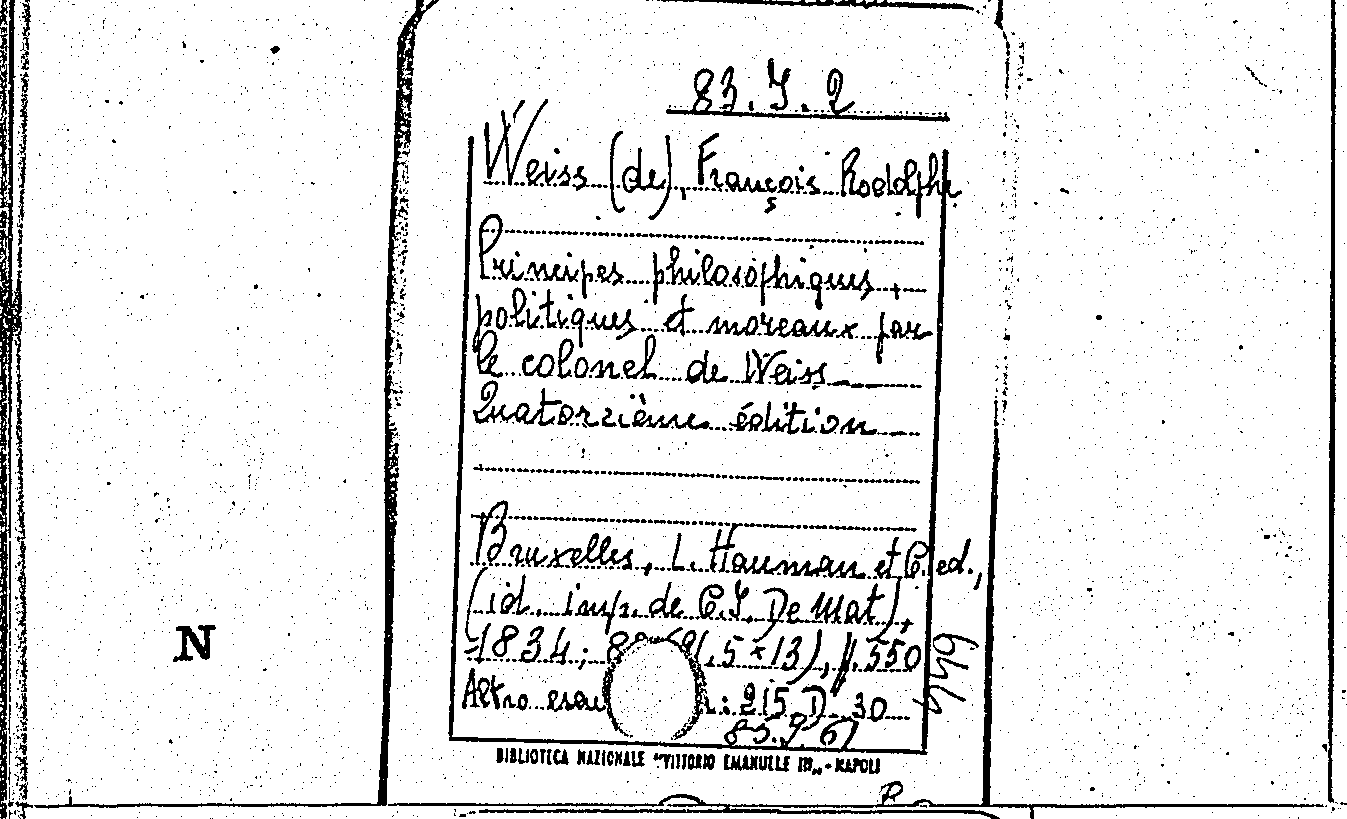 83. J. 2
Weiss (de), François Rodolphe
Principes philosophiques,
politiques et moreaux par
le colonel de Weiss
Quatorzième édition
Bruxelles, L. Hauman et C. ed.,
(id. imp. de C. J. De Mat),
1834; 8° (21,5 × 13), p. 550
Altro esem : 215 D 30
83. 67
BIBLIOTECA NAZIONALE "VITTORIO EMANUELLE III" - NAPOLI
N